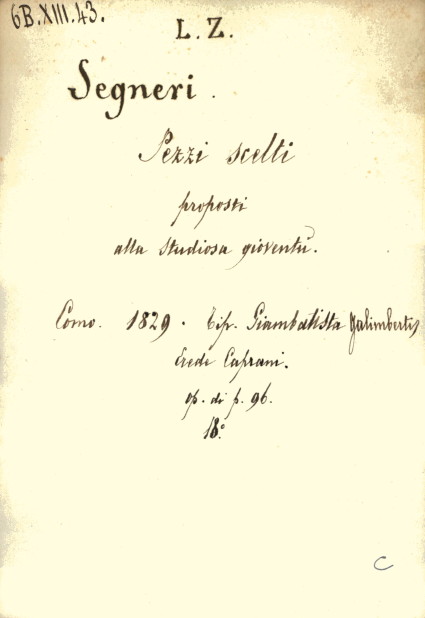 6B.XIII.43.
L. Z.
Segneri.
Pezzi scelti
proposti
alla studiosa gioventù.
Como. 1829. Tip. Giambatista Galimberti,
Erede Caprani.
op. di p. 96.
18.°
C